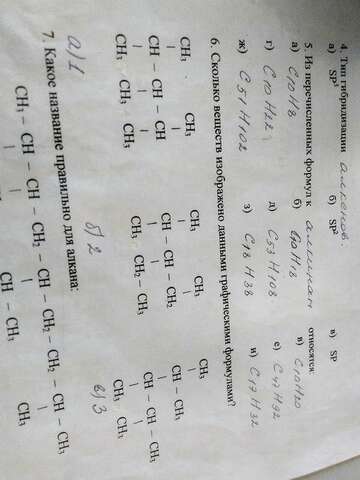 4. Тип гибридизации алкенов.
а) SP³ б) SP² в) SP
5. Из перечисленных формул к алкинам относятся:
а) C10H8 б) C10H18 в) C10H20
г) C10H22 д) C53H108 е) C47H92
ж) C51H102 з) C18H38 и) C17H32
6. Сколько веществ изображено данными графическими формулами?
CH₃ CH₃ CH₃ CH₃ CH₃
CH – CH – CH CH – CH – CH₂ CH – CH – CH₃
CH₃ CH₃ CH₃ CH₃ CH₂ – CH₃ CH₃ CH₃
а) 1 б) 2 в) 3
7. Какое название правильно для алкана:
CH₃ – CH – CH – CH₂ – CH – CH₂ – CH₂ – CH – CH₃
CH – CH₃ CH₃